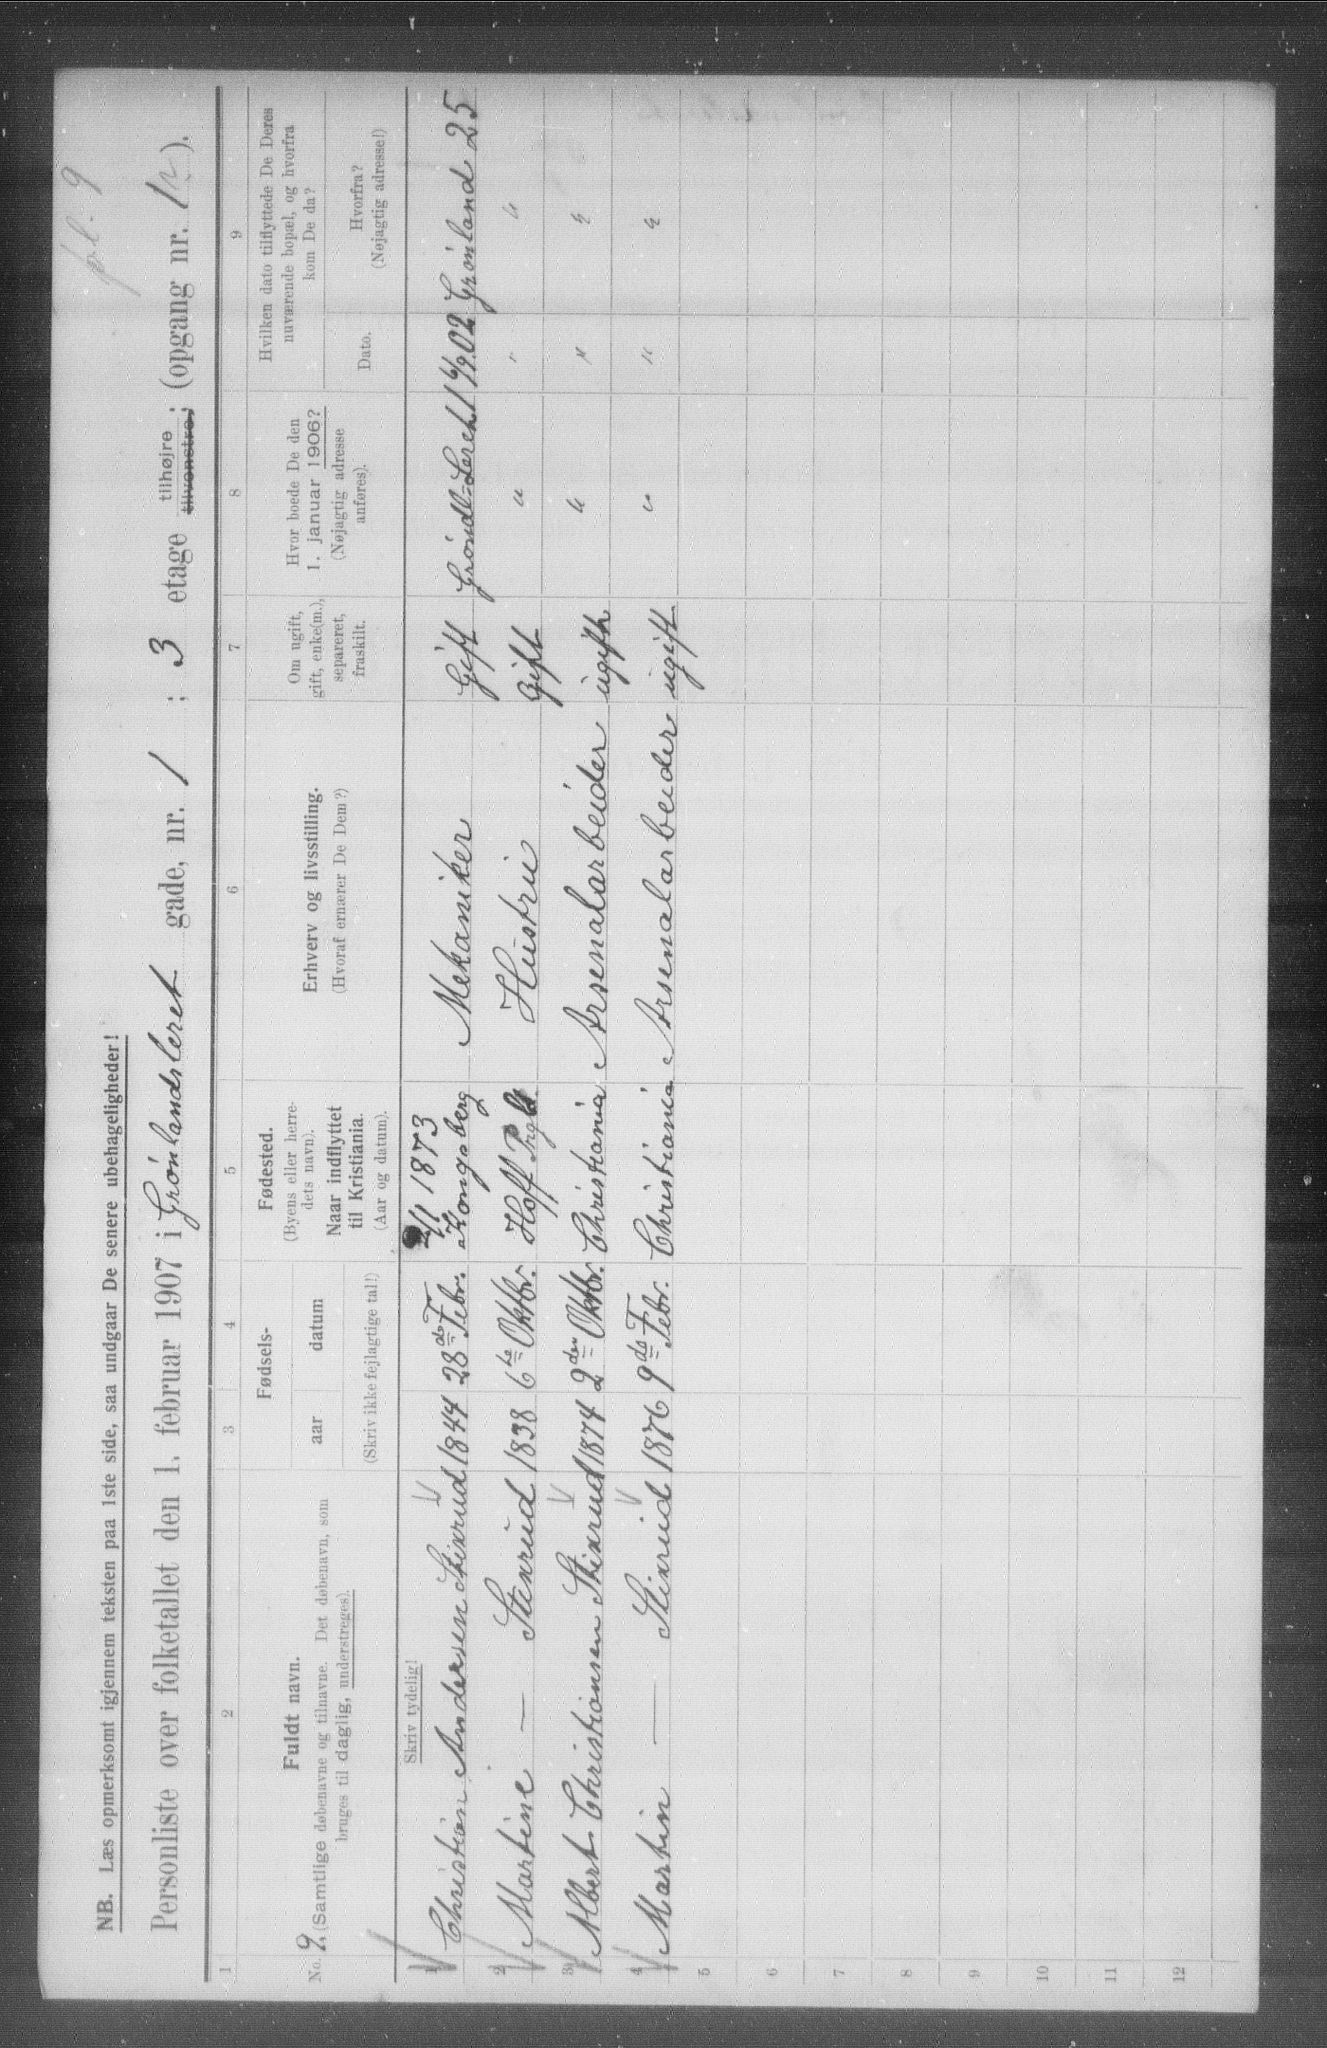 NB. Læs opmerksomt igjennem teksten paa 1ste side, saa undgaar De senere ubehageligheder!
pl. 9
Personliste over folketallet den 1. februar 1907 i Grønlandsleret gade, nr. 1 ; 3 etage tilhøjre tilvenstre; (opgang nr. 12).
1 2 3 4 5 6 7 8 9
No. 9.
Fuldt navn.
(Samtlige døbenavne og tilnavne. Det døbenavn, som
bruges til daglig, understreges).
Fødsels-
aar datum
(Skriv ikke fejlagtige tal!)
Fødested.
(Byens eller herre-
dets navn).
Naar indflyttet
til Kristiania.
(Aar og datum).
Erhverv og livsstilling.
(Hvoraf ernærer De Dem?)
Om ugift,
gift, enke(m.),
separeret,
fraskilt.
Hvor boede De den
1. januar 1906?
(Nøjagtig adresse
anføres).
Hvilken dato tilflyttede De Deres
nuværende bopæl, og hvorfra
kom De da?
Dato.
Hvorfra?
(Nøjagtig adresse!)
Skriv tydelig!
1 Christian Andersen Stixrud 1844 28de Febr. 2/1 1873 Kongsberg Mekaniker Gift Grøndl=Leret 1 6/9.02 Grønland 25
2 Martine — Stixrud 1838 6te Oktbr. Hoff Prgld. Hustru Gift " " "
3 Albert Christiansen Stixrud 1874 2den Oktbr. Christiania Arsenalarbeider ugift " " "
4 Martin — Stixrud 1876 9de Febr. Christiania Arsenalarbeider ugift " " "
5
6
7
8
9
10
11
12